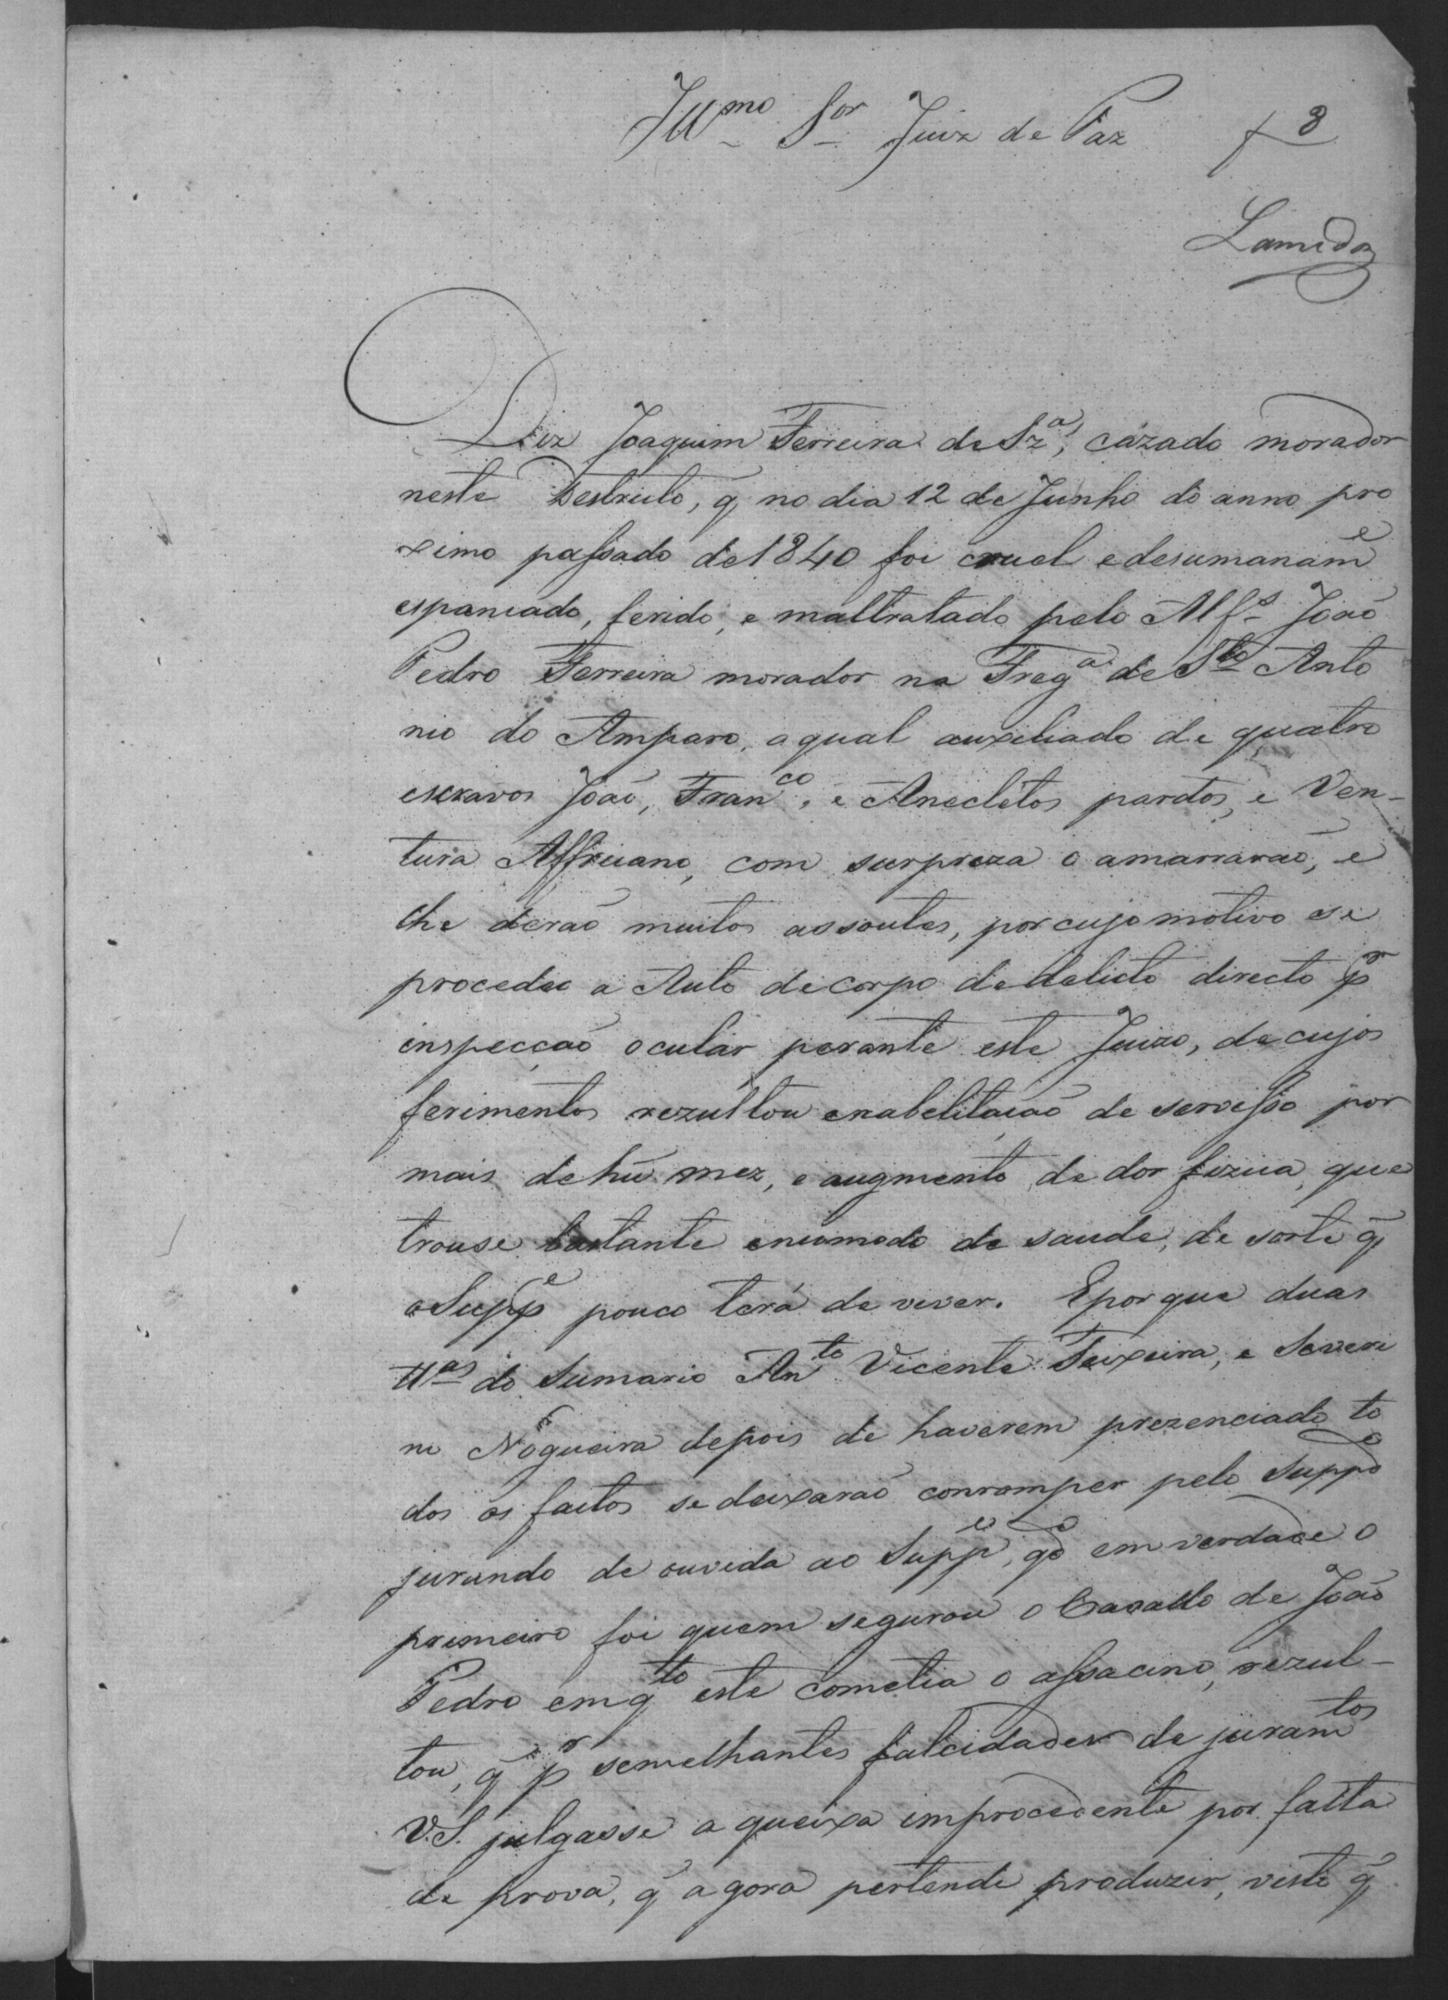 Illmo Sor Juiz de Paz
f 3
Diz Joaquim Ferreira de Sza, cazado morador
neste Destricto, q̃ no dia 12 de Junho do anno pro
ximo passado de 1840 foi cruel e desumaname
espancado, ferido, e maltratado pelo Alfs João
Pedro Ferreira morador na Frega de Sto Anto
nio do Amparo, o qual auxeliado de quatro
escravos João, Franco, e Anecletos pardos, e Ven-
tura Affricano, com surpreza o amarrarão, e
lhe derão muitos assoutes, por cujo motivo se
procedeo a Auto de corpo de delicto directo pr
inspecção ocular perante este Juizo, de cujos
ferimentos rezultou enabelitação de servisso por
mais de hũ mez, e augmento de dor fizica, que
trouse bastante encomodo de saude, de sorte q̃
o Suppe pouco terá de viver. E porque duas
ttas do Sumario Anto Vicente Teixeira, e Severi
no Nogueira depois de haverem prezenciado to
dos os factos se deixarão conromper pelo Suppdo
jurando de ouvida ao Suppe, qdo em verdade o
primeiro foi quem segurou o Cavallo de João
Pedro emqto este cometia o assacino, rezul-
tou, q̃ pr semelhantes falcidades de juramtos
V.S. julgasse a queixa improcedente por falta
de prova, q̃ agora pertende produzir, visto q̃